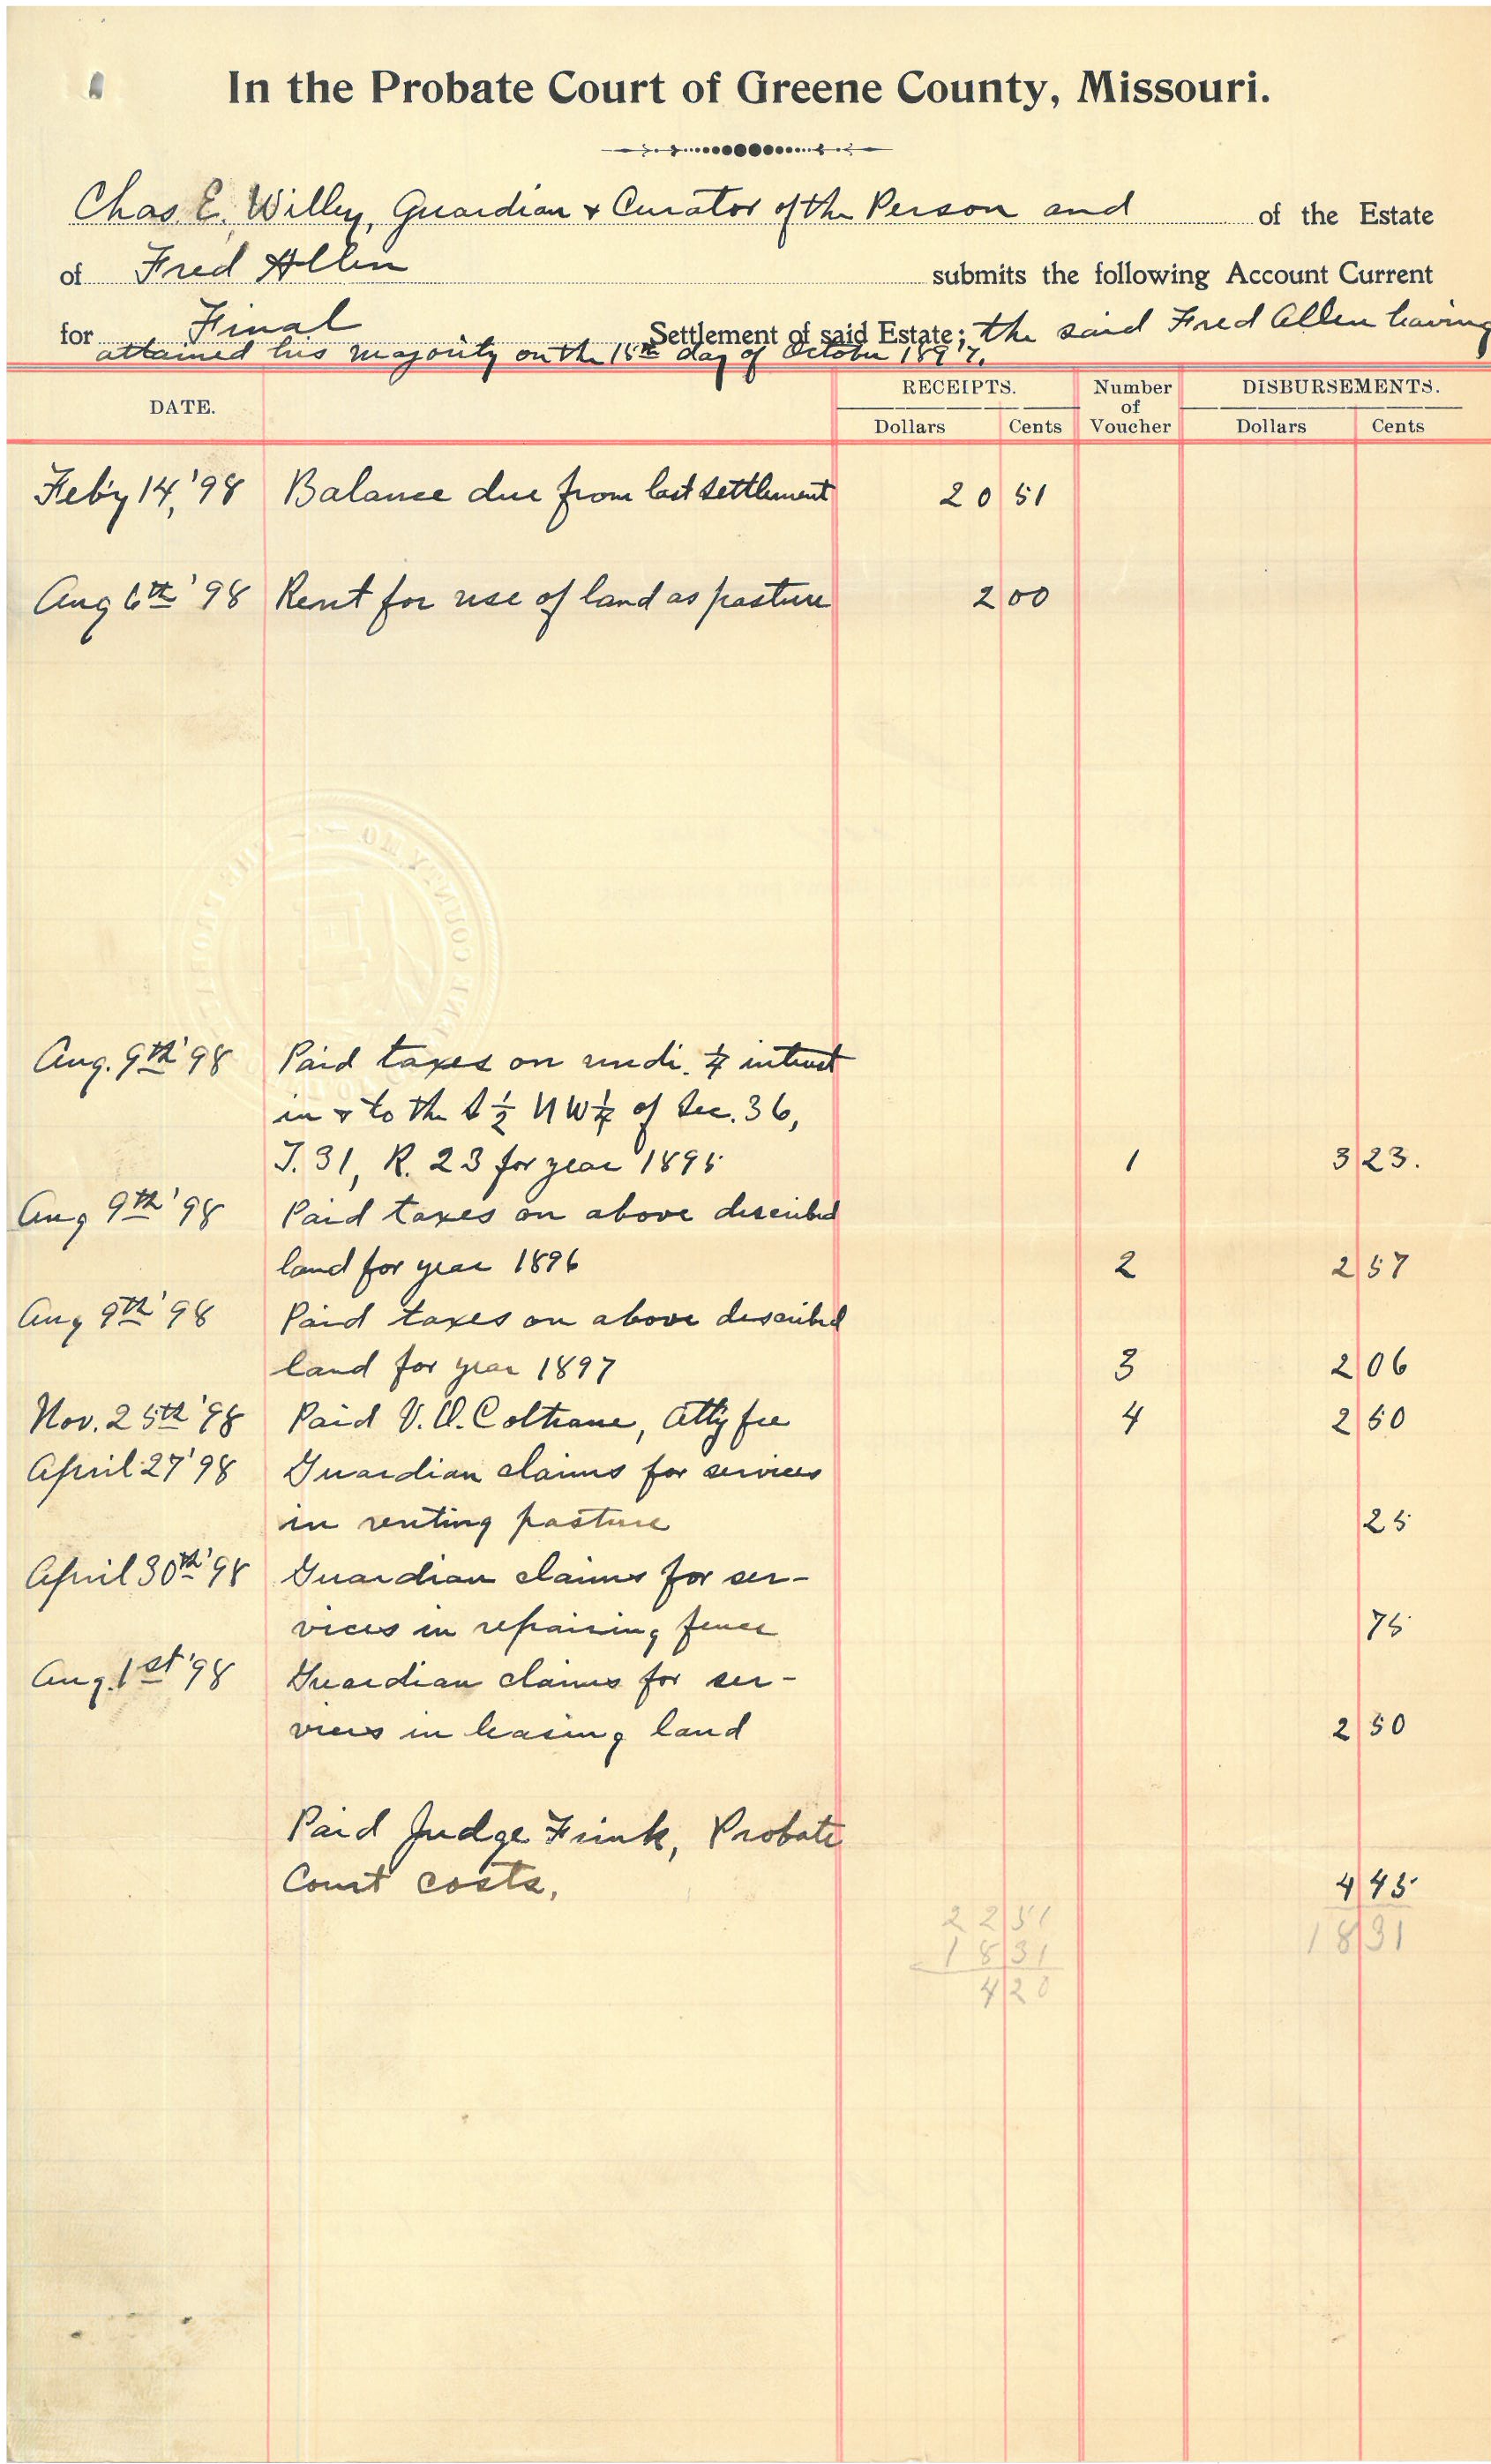 In the Probate Court of Greene County, Missouri.
Chas. E. Willey, Guardian & Curator of the Person and of the Estate
of Fred Allen submits the following Account Current
for Final Settlement of said Estate; the said Fred Allen having
attained his majority on the 15th day of October 1897.
DATE. RECEIPTS. Number of Voucher DISBURSEMENTS.
Dollars Cents Dollars Cents
Feb'y 14, '98 Balance due from last settlement 20 51
Aug 6th '98 Rent for use of land as pasture 2 00
COUNTY, MO
Aug. 9th '98 Paid taxes on undi. 1/4 interest
in & to the S 1/2 NW 1/4 of Sec. 36,
T. 31, R. 23 for year 1895 1 3 23.
Aug 9th '98 Paid taxes on above described
land for year 1896 2 2 57
Aug 9th '98 Paid taxes on above described
land for year 1897 3 2 06
Nov. 25th '98 Paid V. O. Coltrane, Att'y fee 4 2 50
April 27 '98 Guardian claims for services
in renting pasture 25
April 30th '98 Guardian claims for ser-
vices in repairing fence 75
Aug. 1st '98 Guardian claims for ser-
vices in leasing land 2 50
Paid Judge Fink, Probate
Court costs. 4 45
22 51 18 31
18 31
4 20